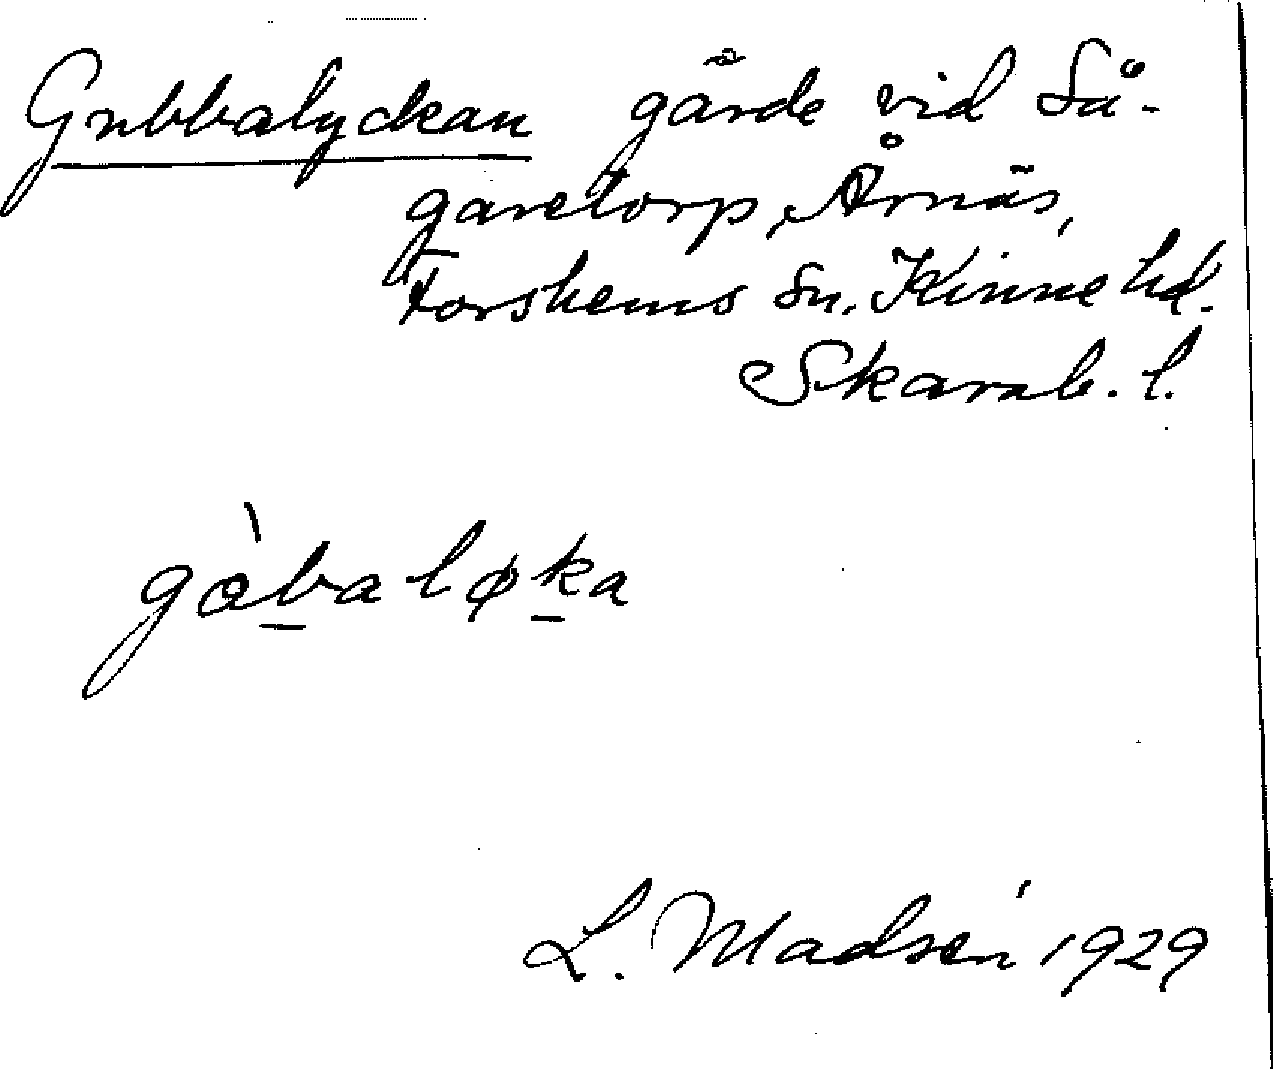 Gubbalyckan gärde vid Så-
garetorp, Årnäs,
Forshems sn, Kinne hd.
Skarab. l.
gòbaløka
L. Madsén 1929